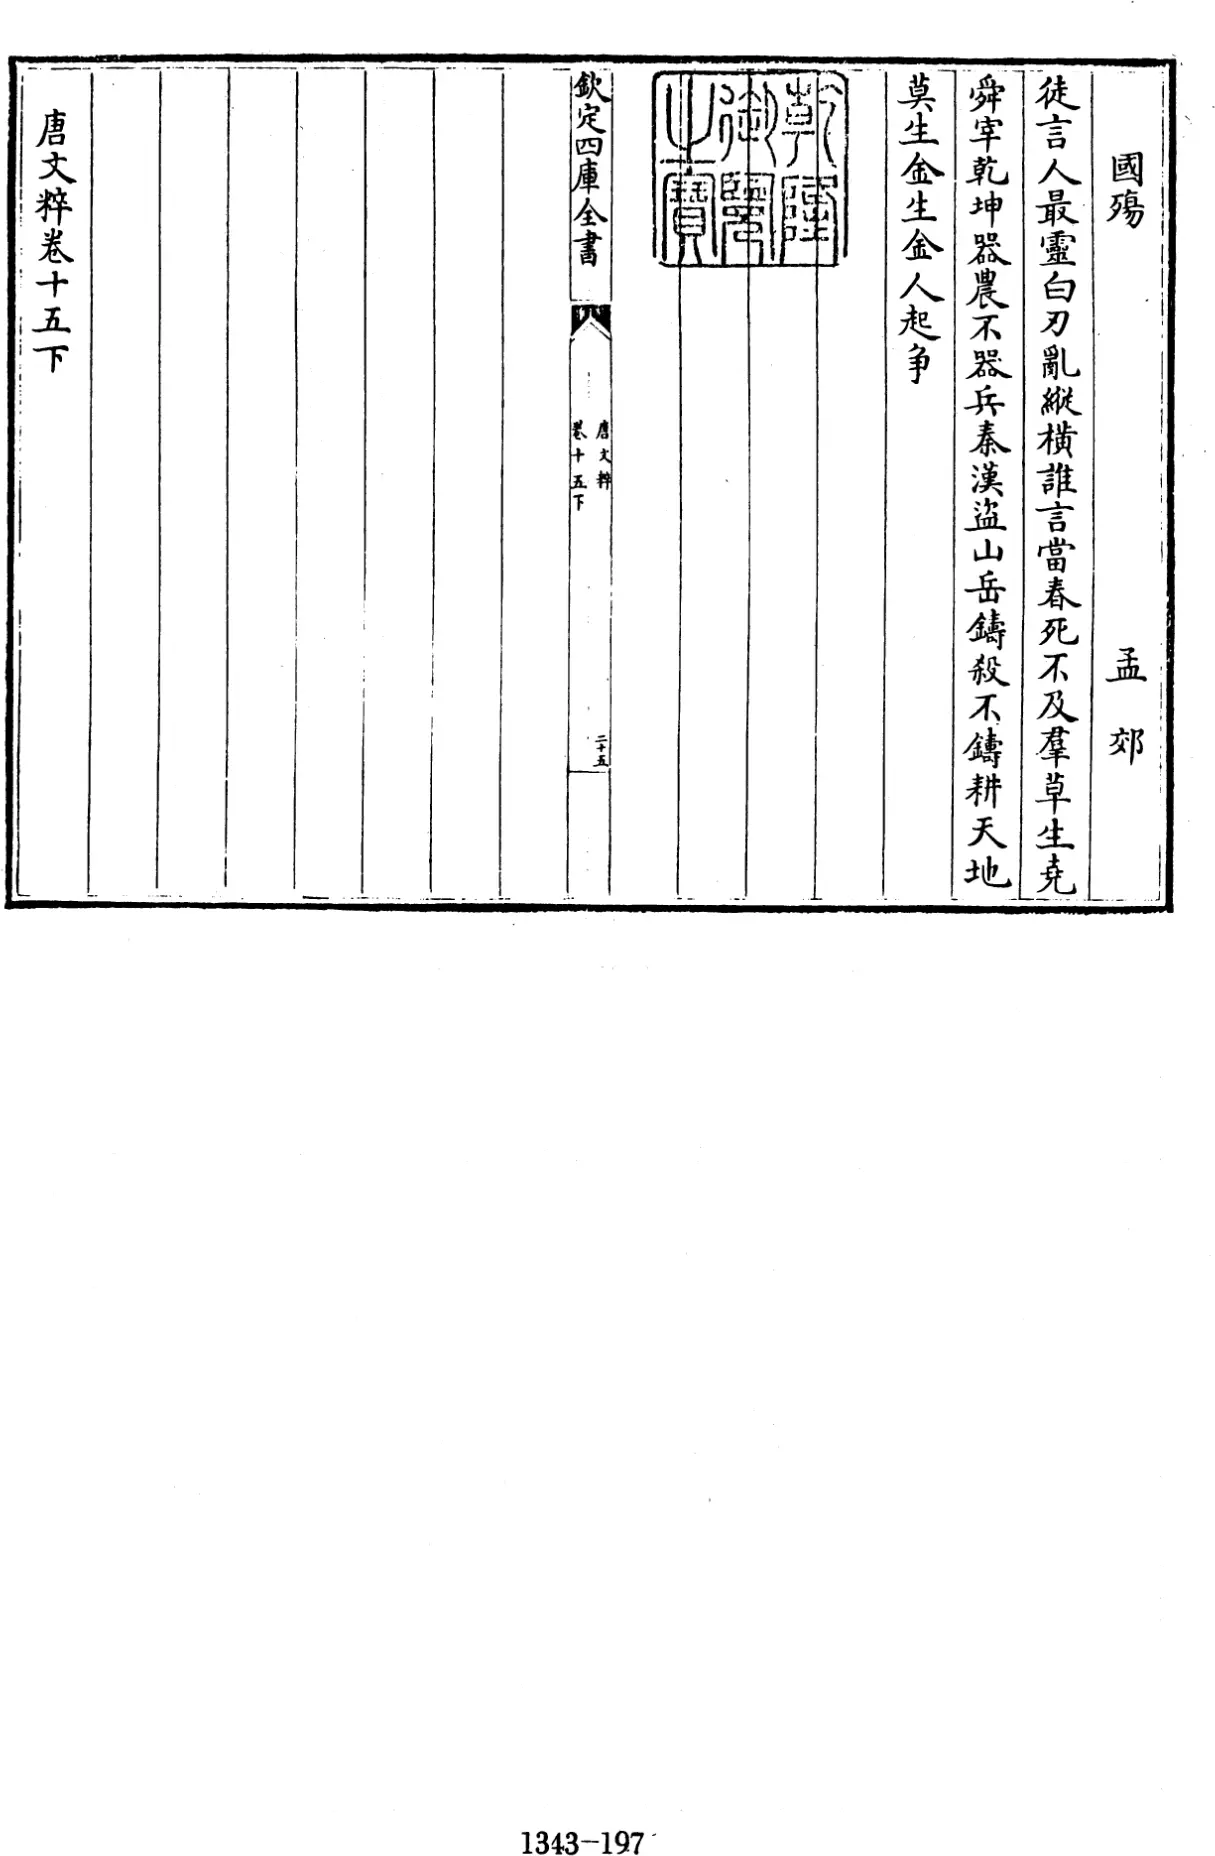 國殤 孟郊
徒言人最靈白刃亂縱橫誰言當春死不及羣草生堯
舜宰乾坤器農不器兵秦漢盜山岳鑄殺不鑄耕天地
莫生金生金人起爭
乾隆
御覽
之寶
欽定四庫全書
唐文粹
卷十五下
二十五
唐文粹卷十五下
1343-197